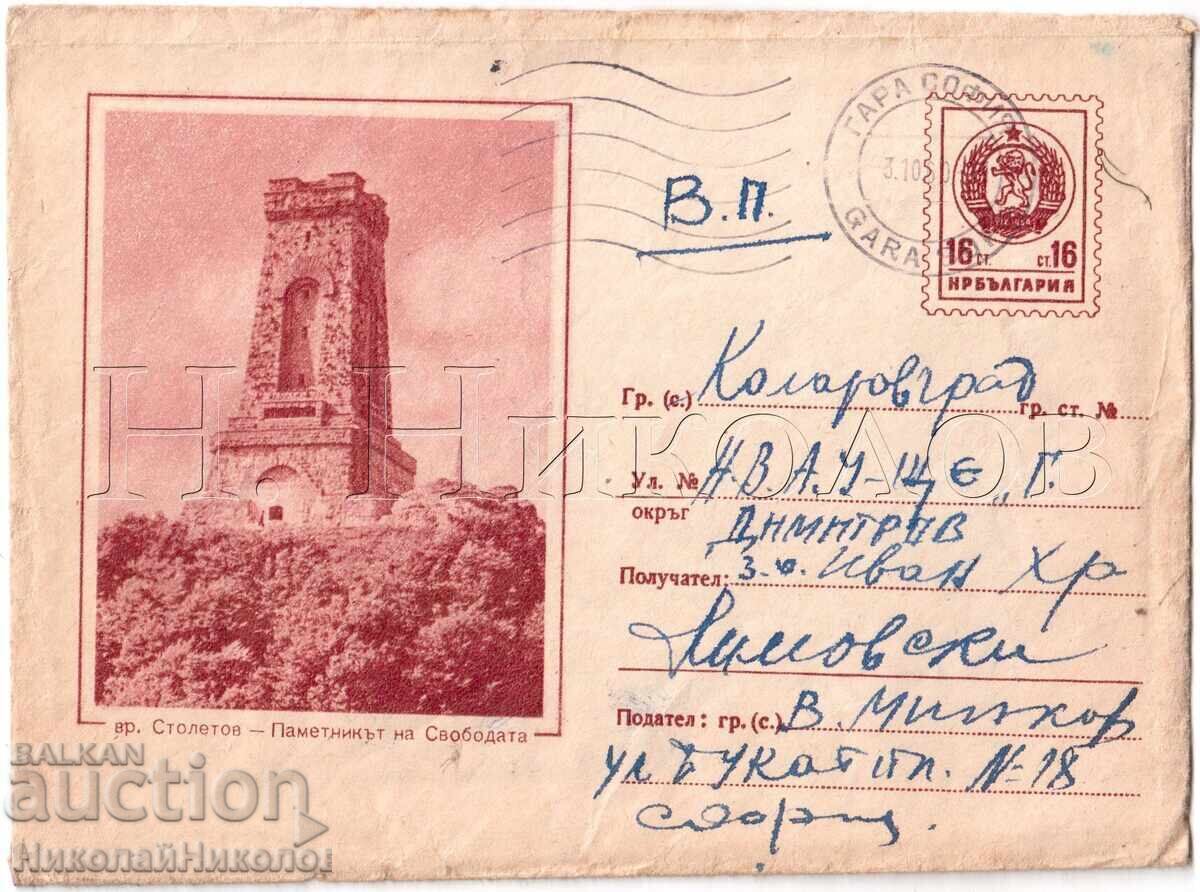 ГАРА СОФИЯ
3.10.60
GARA
В.П.
16 ст. ст. 16
НРБЪЛГАРИЯ
Гр. (с.) Коларовград гр. ст. №
Ул. № Н.В.А.У-ще "Г.
окръг Димитров
Получател: Иван Хр
Димовски
Подател: гр. (с.) В.
ул. № 18
София.
вр. Столетов — Паметникът на Свободата
Н. Николов
BALKAN
auction
НиколайНиколов